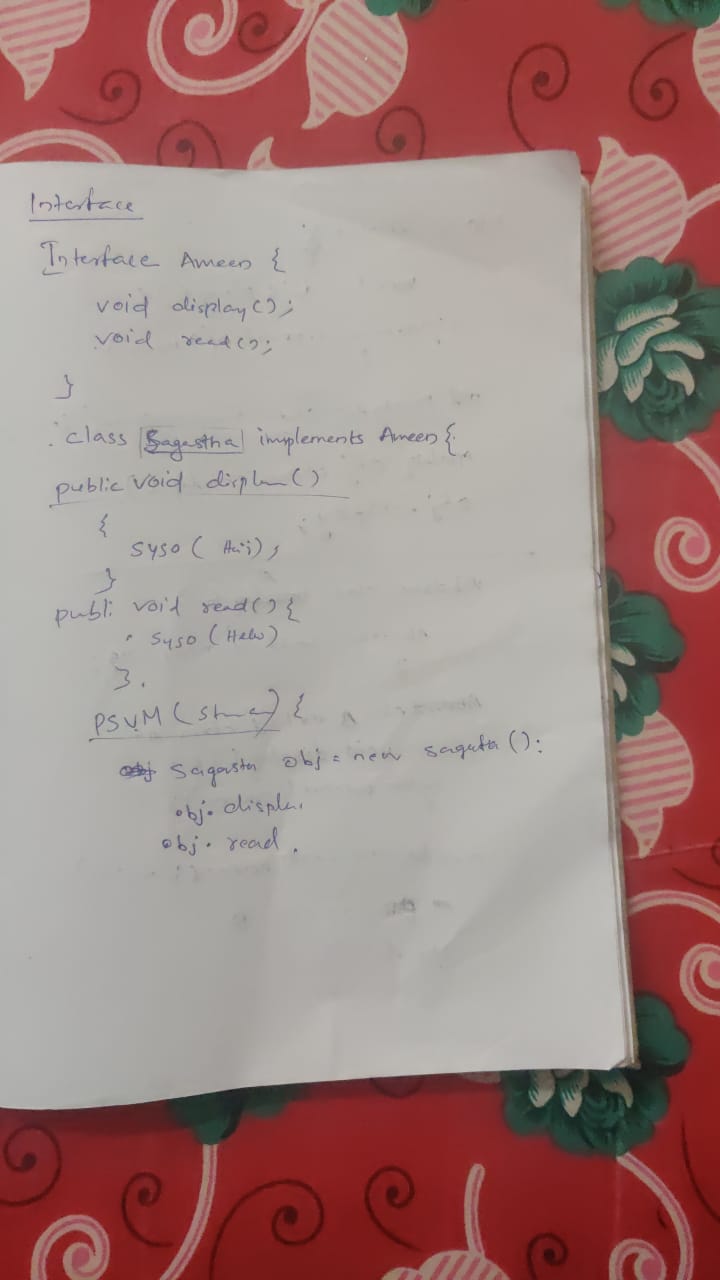 Interface
Interface Ameen {
void display();
void read();
}
class Sagastha implements Ameen {
public void displa()
{
syso ( Haii);
}
publi void read() {
syso (Hello)
}.
PSVM ( ) {
Sagasta obj = new sagasta ():
obj. displa.
obj. read.